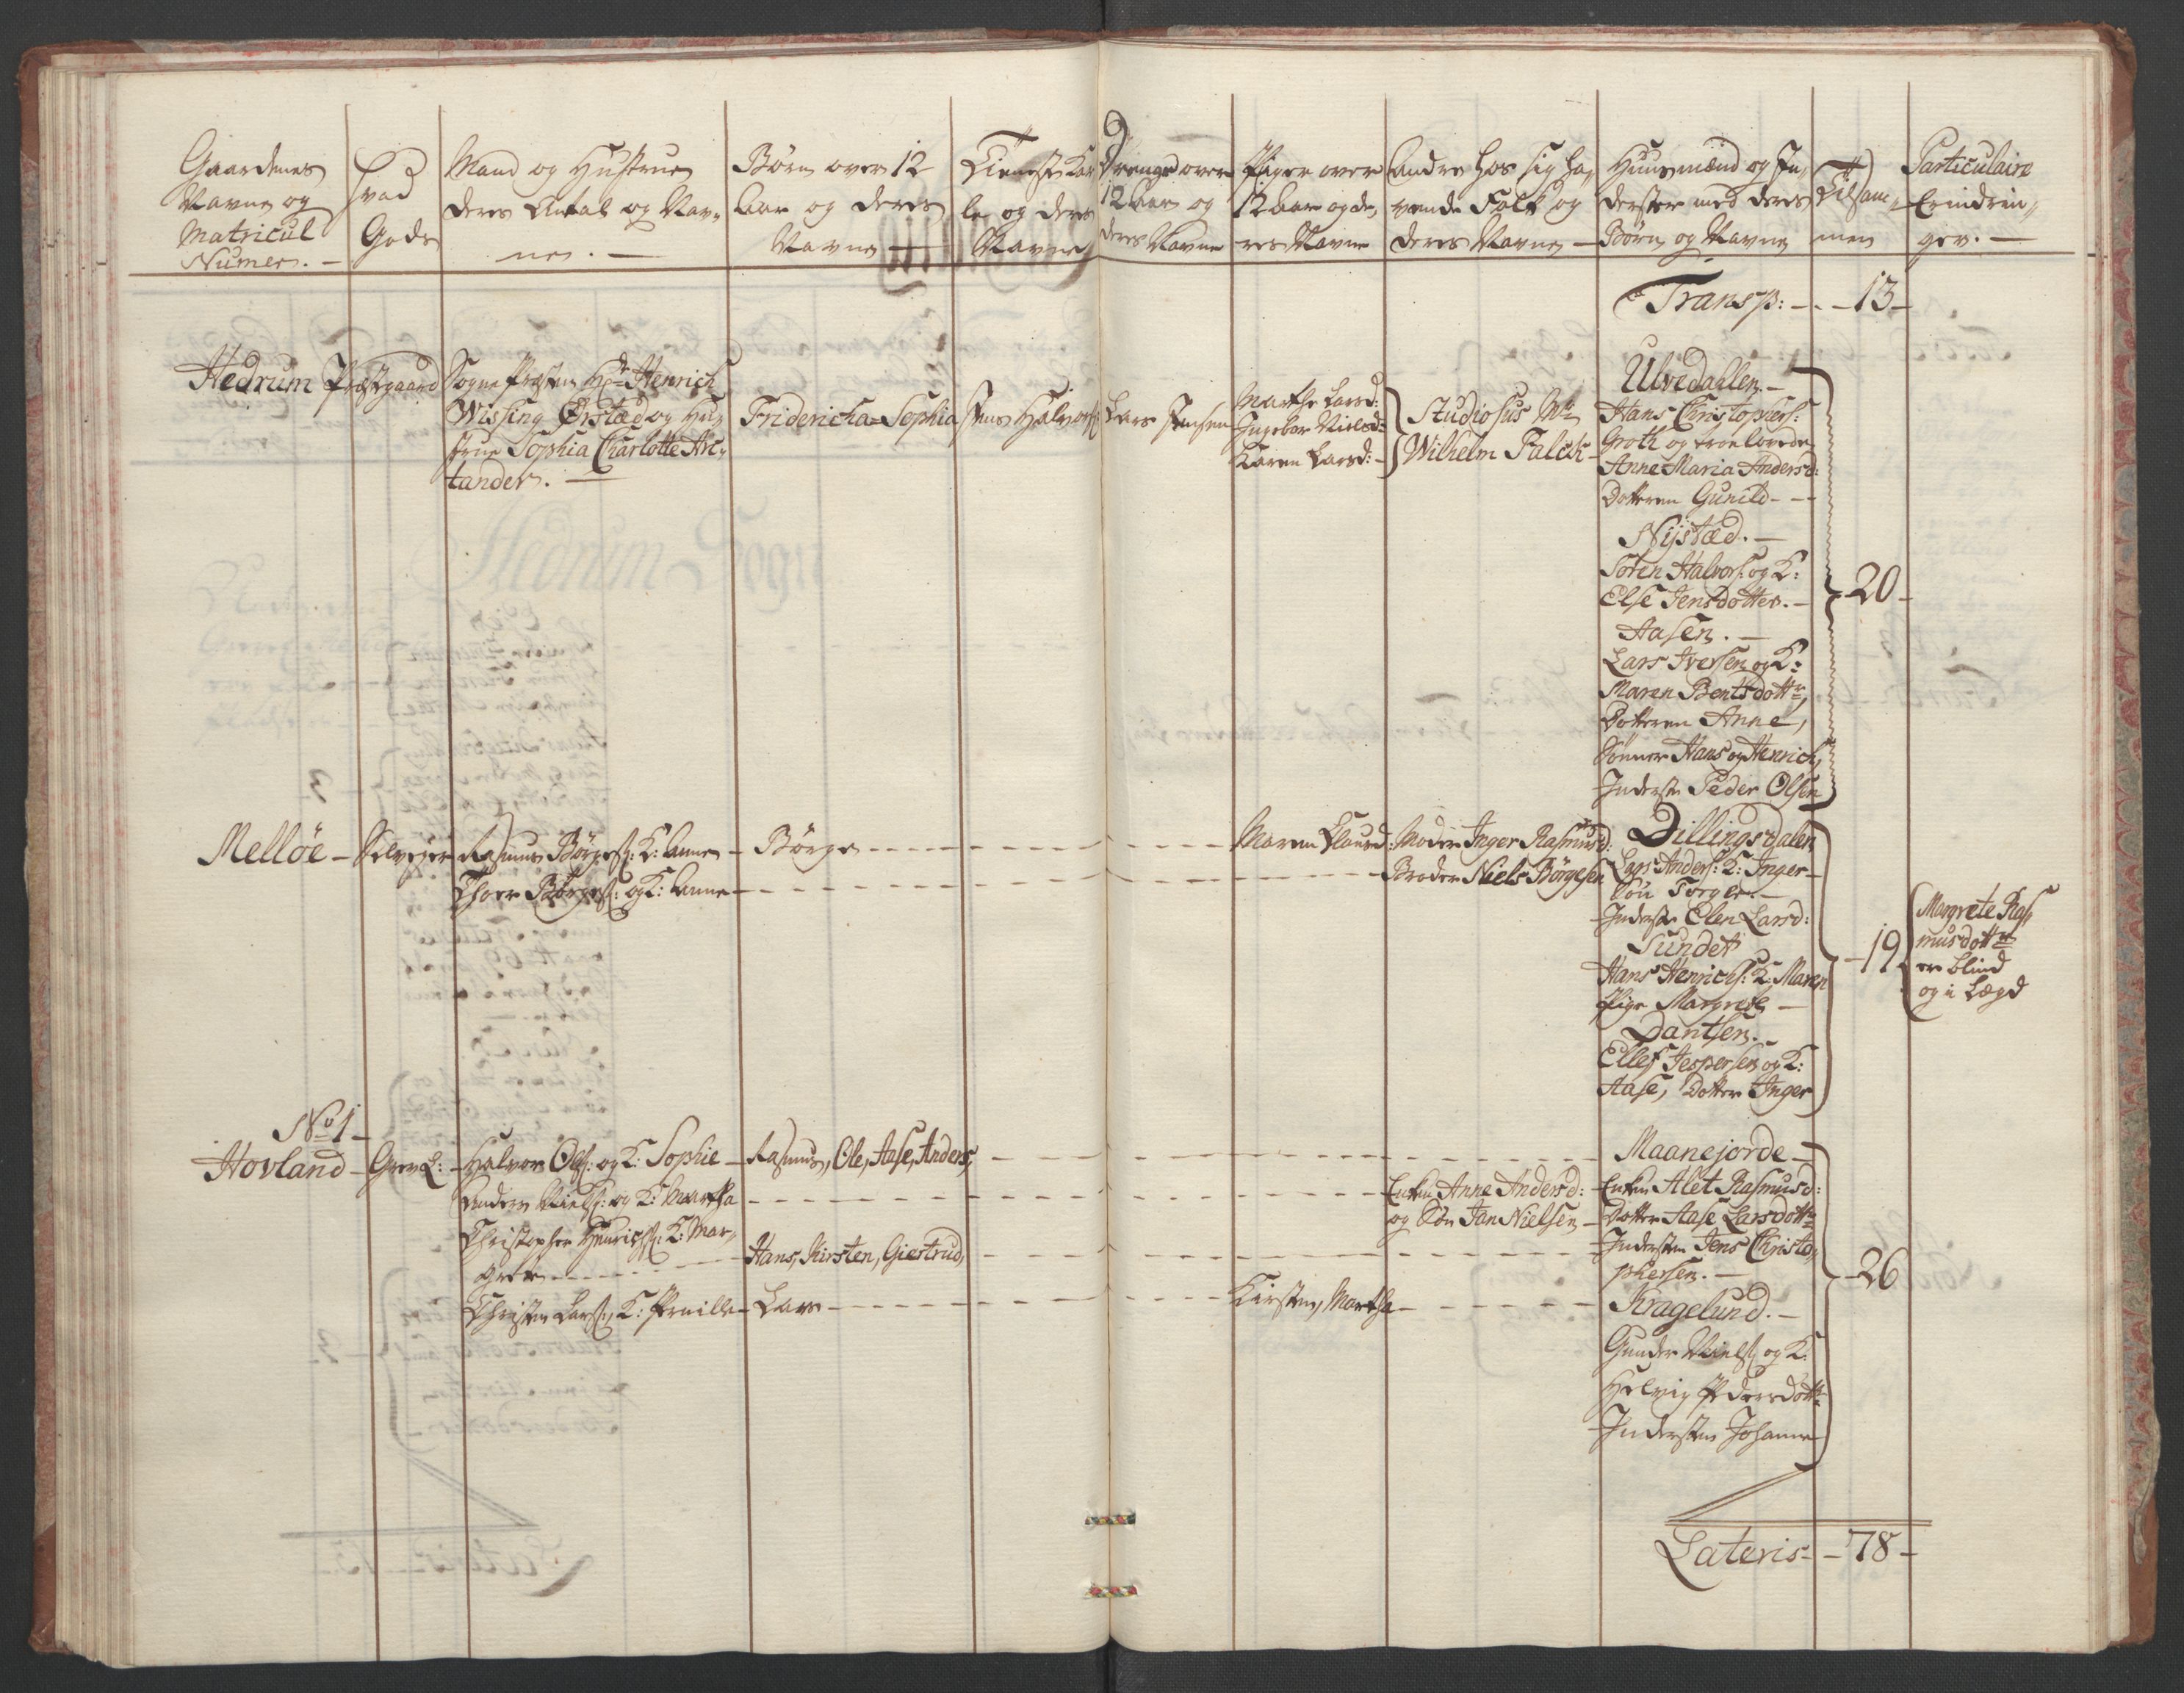 Gaardenes
Navne og
Matricul
Numer. -
Hvad
Gods
Mand og Hustrue
deres Antal og Nav-
ne. -
Børn over 12
Aar og deres
Navne
Tieneste Kar
le og deres
Navne
Drenge over
12 Aar og
deres Navne
Piger over
12 Aar og de,
res Navne
Andre hos sig ha,
vende Folk og
deres Navne -
Huusmænd og In,
derster med deres
Børn og Navne
Tilsam-
men
Particulaire
Erindrin-
ger. -
Transp: - - 13 -
Hedrum Præstgaard
Sogne Præsten Hr. Henrich
Wissing Ørstæd og Hu,
strue Sophia Charlotte Arc-
tander. -
Fridericha Sophia
Jens Halvors:
Lars Jensen
Marthe Larsd:
Ingebor Nielsd:
Karen Larsd: -
Studiosus Mr
Wilhelm Falck -
Ulvedahlen. -
Hans Christophers:
Groth og troelovede
Anne Maria Andersd:
Datteren Gunild - -
Nijstæd. -
Søren Halvors: og K:
Else Jensdotter. -
Aasen. -
Lars Iversen og K:
Maren Bentsdottr,
Datteren Anne,
Sønner Hans og Henrich,
Inderste Peder Olsen
20 -
Melløe - Selvejer
Rasmus Børges: K: Anne - Børge
Thor Børges: og K: Anne
Maren Clausd:
Moder Inger Rasmusd:
Broder Niels Børgesen
Dillingsdalen
Lars Anders: K: Inger -
Søn Torger. -
Inderste Elen Larsd:
Sundet
Hans Henrichs: K: Maren
Pige Margrete -
Dantsen. -
Ellef Jespersen og K:
Aase, Dotter Inger
- 19
Margrete Ras,
musdottr
er blind
og i Lægd
No 1 -
Hovland - Grev L: -
Halvor Ols: og K: Sophie - Rasmus, Ole, Aase, Anders,
Anders Niels: og K: Martha
Christopher Henrichs: K: Mar-
grete
Hans, Kirsten, Giertrud,
Christen Lars:, K: Pernille - Lars
Kirsten, Martha
Enken Anne Andersd:
og Søn Jan Nielsen
Maanejorde -
Enken Alet Rasmusd:
Dotter Aase Larsdottr
Indersten Jens Christo,
phersen. -
Kragelund. -
Gunder Niels: og K:
Helvig Pedersdottr
Indersten Johanne
- 26
Lateris - - 78 -